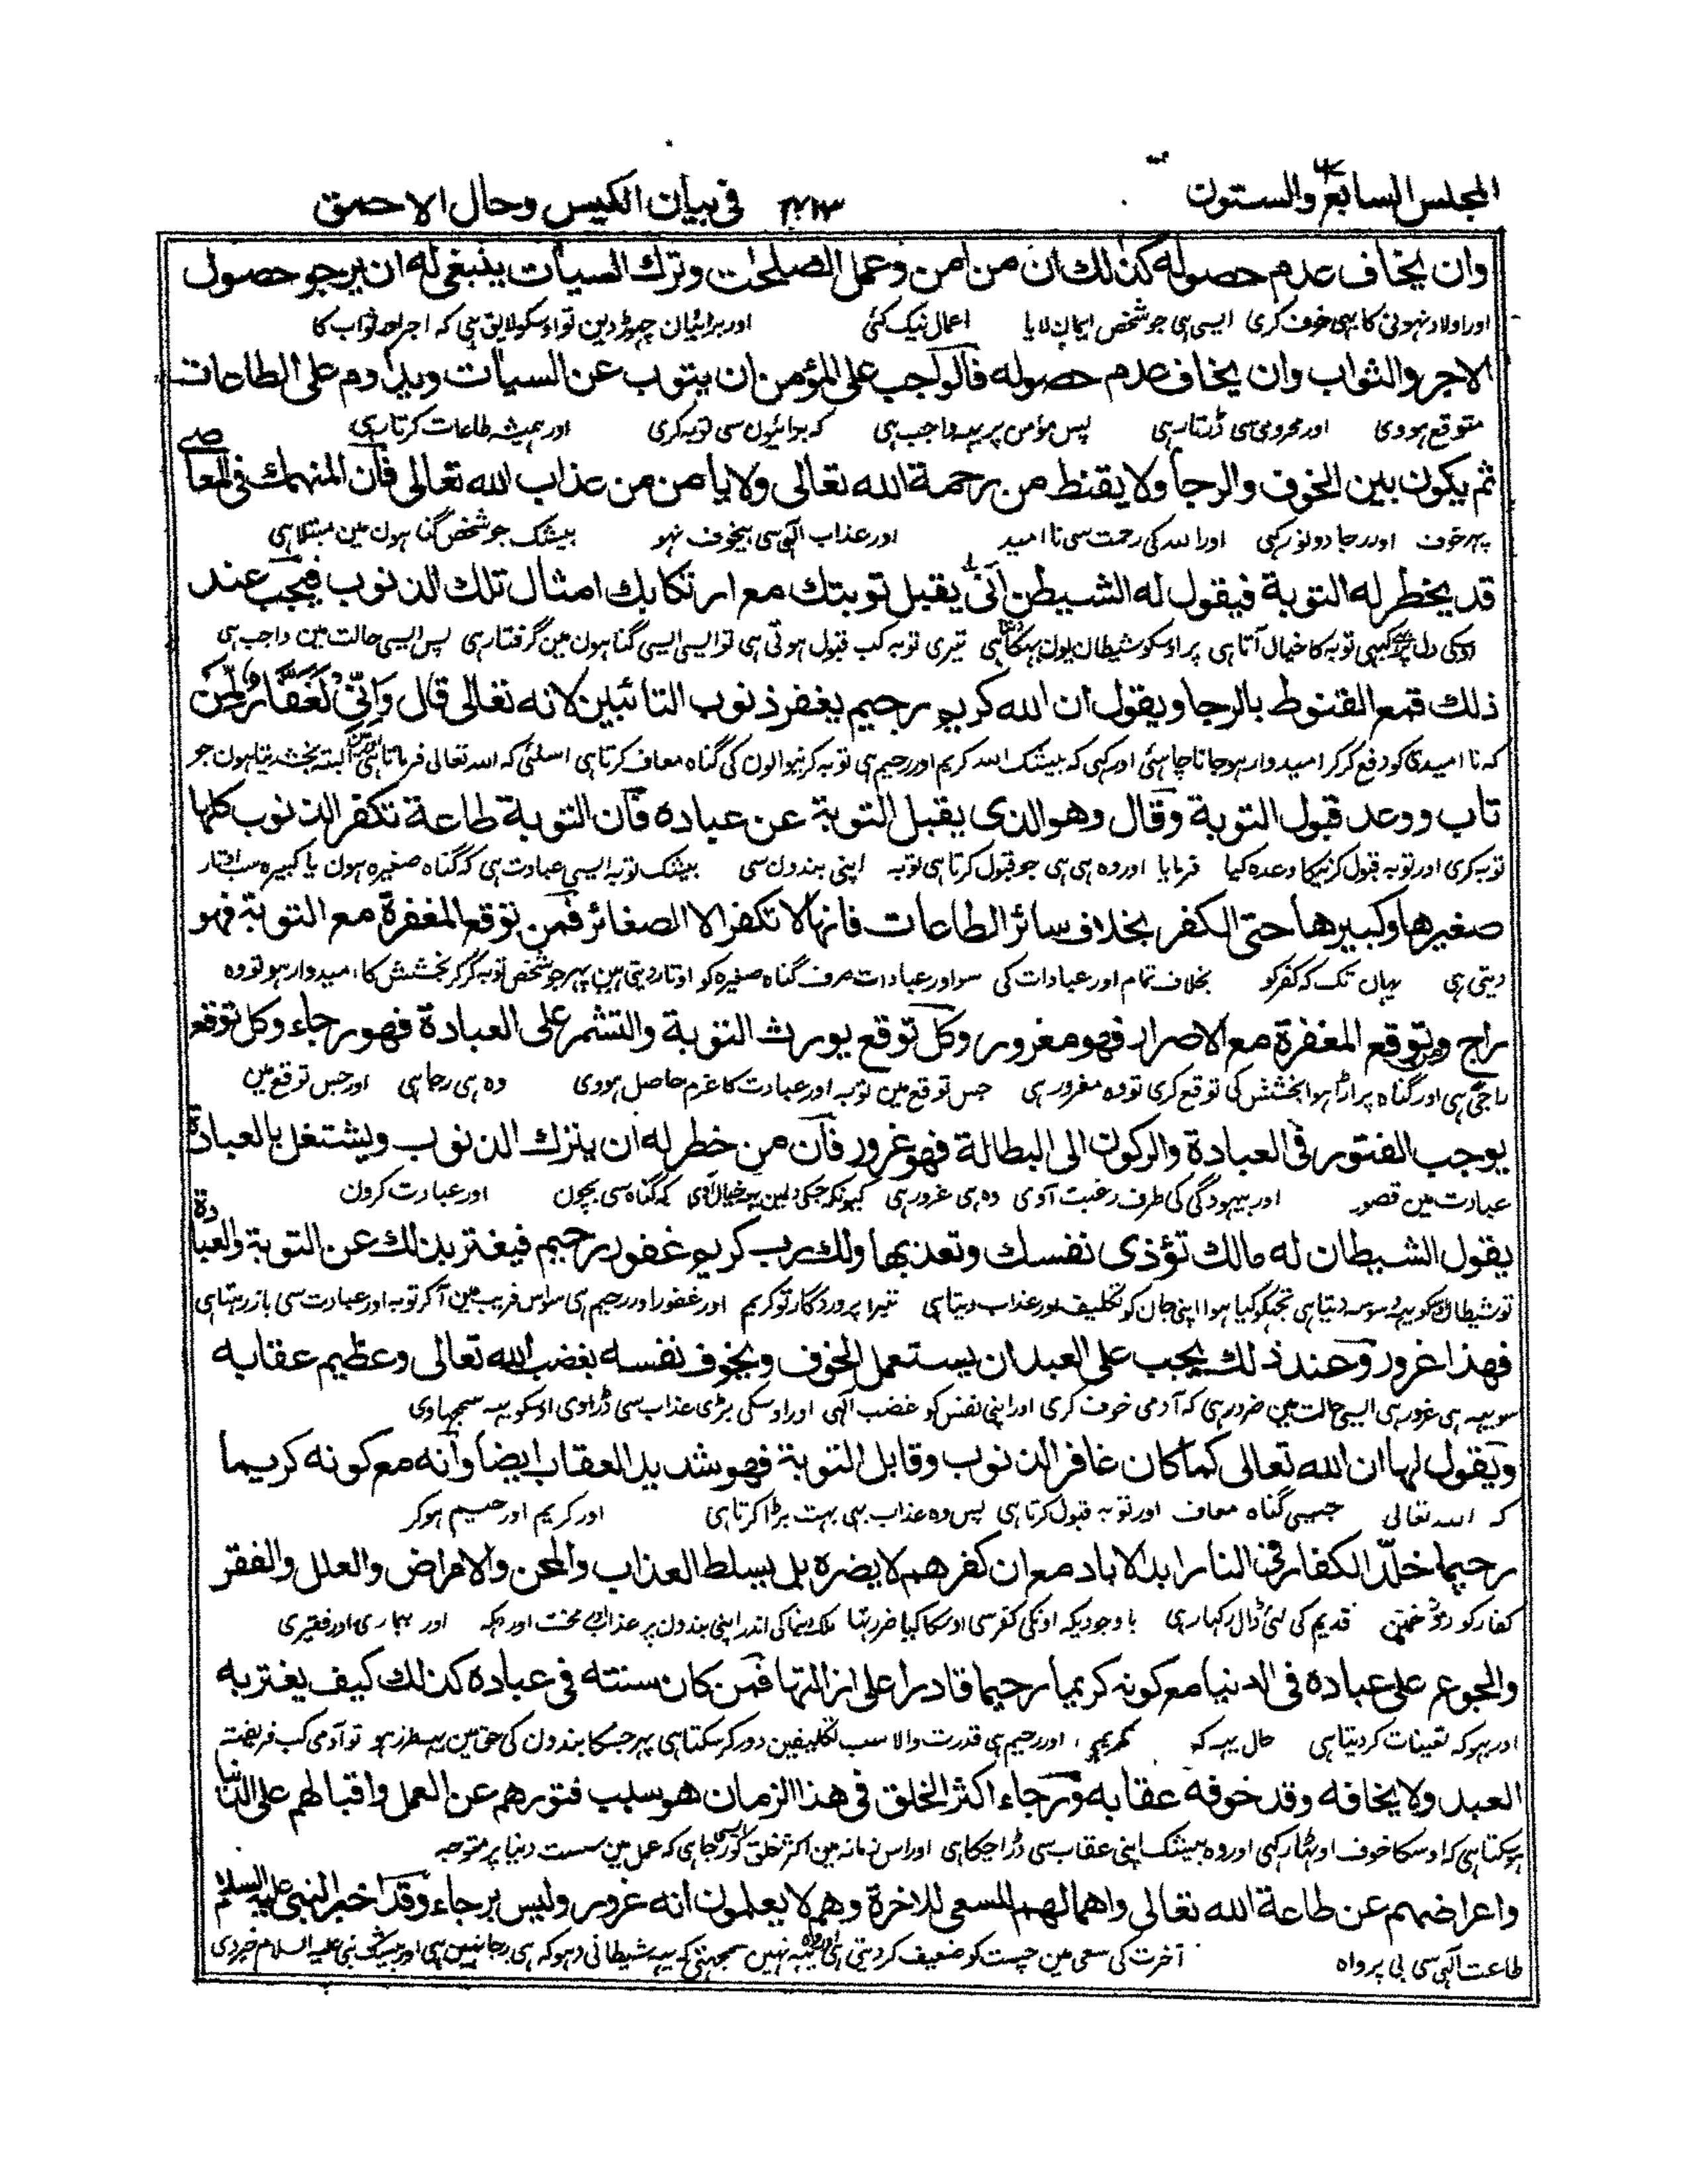 المجلس السابع والستون ٤٧٣ في بيان الكيس وحال الاحمق
وان يخاف عدم حصوله كذلك ان من امن وعمل الصلحت وترك السيأت ينبغي له ان يرجو حصول
اور اولاد نہونی کا بہی خوف کری ایسی ہی جو شخص ایمان لایا اعمال نیک کئی اور برائیان چہوڑدین تو اوسکو لایق ہی کہ اجر اور ثواب کا
الاجر والثواب وان يخاف عدم حصوله فالواجب على المؤمن ان يتوب عن السيأت ويداوم على الطاعات
متوقع ہووی اور محرومی سی ڈرتا رہی پس مؤمن پر یہہ واجب ہی کہ برائیون سی توبہ کری اور ہمیشہ طاعات کرتا رہی
ثم يكون بين الخوف والرجا ولا يقنط من رحمة الله تعالى ولا يامن من عذاب الله تعالى فان المنهمك في المعاصي
پہر خوف اور رجا دونو رکہی اور اللہ کی رحمت سی نا امید اور عذاب الٰہی سی بیخوف نہو بیشک جو شخص گناہون مین مبتلا ہی
قد يخطر له التوبة فيقول له الشيطن انى يقبل توبتك مع ارتكابك امثال تلك الذنوب فيجب عند
کبہی توبہ کا خیال آتا ہی پر اوسکو شیطان یون بہکاتا ہی تیری توبہ کب قبول ہوتی ہی تو ایسی ایسی گناہون مین گرفتار ہی پس ایسی حالت مین واجب ہی
ذلك قمع القنوط بالرجا ويقول ان الله كريم رحيم يغفر ذنوب التائبين لانه تعالى قال وَاِنِّي لَغَفَّارٌ لِّمَن
کہ نا امیدی کو دفع کر کر امیدوار ہو جانا چاہئی اور کہی کہ بیشک اللہ کریم اور رحیم ہی توبہ کرنیوالون کی گناہ معاف کرتا ہی اسلئی کہ اللہ تعالی فرماتا ہی البتہ بخشدیتا ہون جو
تاب ووعد قبول التوبة وقال وهو الذى يقبل التوبة عن عباده فان التوبة طاعة تكفر الذنوب كلها
توبہ کری اور توبہ قبول کرنیکا وعدہ کیا فرمایا اور وہ ہی ہی جو قبول کرتا ہی توبہ اپنی بندون سی بیشک توبہ ایسی عبادت ہی کہ گناہ صغیرہ ہون یا کبیرہ سب اوتار
صغيرها وكبيرها حتى الكفر بخلاف سائر الطاعات فانها لا تكفر الا الصغائر فمن توقع المغفرة مع التوبة فهو
دیتی ہی یہان تک کہ کفر کو بخلاف تمام اور عبادات کی سو اور عبادات صرف گناہ صغیرہ کو اوتار دیتی ہین پہر جو شخص توبہ کر کر بخشش کا امیدوار ہو تو وہ
راج ومن توقع المغفرة مع الاصرار فهو مغرور وكل توقع يورث التوبة والتشمر على العبادة فهو رجاء وكل توقع
راجی ہی اور گناہ پر اڑا ہوا بخشش کی توقع کری تو وہ مغرور ہی جس توقع مین توبہ اور عبادت کا عزم حاصل ہووی وہ ہی رجا ہی اور جس توقع مین
يوجب الفتور في العبادة والركون الى البطالة فهو غرور فان من خطر له ان يترك الذنوب ويشتغل بالعبادة
عبادت مین قصور اور بیہودگی کی طرف رغبت آوی وہ ہی غرور ہی کیونکہ جسکی دلمین یہہ خیال آوی کہ گناہ سی بچون اور عبادت کرون
يقول الشيطان له مالك تؤذى نفسك وتعذبها ولك رب كريم غفور رحيم فيغتر بذلك عن التوبة والعبادة
تو شیطان اوسکو یہہ وسوسہ دیتا ہی تجہکو کیا ہوا اپنی جان کو تکلیف اور عذاب دیتا ہی تیرا پروردگار تو کریم اور غفور اور رحیم ہی سو اس فریب مین آکر توبہ اور عبادت سی باز رہتا ہی
فهذا غرور وعند ذلك يجب على العبد ان يستعمل الخوف ويخوف نفسه بغضب الله تعالى وعظيم عقابه
سو یہہ ہی غرور ہی ایسی حالت مین ضرور ہی کہ آدمی خوف کری اور اپنی نفس کو غضب الٰہی اور اوسکی بڑی عذاب سی ڈراوی اوسکو یہہ سمجہاوی
ويقول لها ان الله تعالى كما كان غافر الذنوب وقابل التوبة فهو شديد العقاب ايضا وانه مع كونه كريما
کہ اللہ تعالی جیسی گناہ معاف اور توبہ قبول کرتا ہی پس وہ عذاب بہی بہت بڑا کرتا ہی اور کریم اور رحیم ہو کر
رحيما خلّد الكفار في النار ابد الاباد مع ان كفرهم لا يضره بل يسلط العذاب والمحن والامراض والعلل والفقر
کفار کو دوزخ مین قدیم کی لئی ڈال رکہا رہی با وجودیکہ اونکی کفر سی اوسکا کیا ضرر تہا بلکہ دنیا کی اندر اپنی بندون پر عذاب محنت اور دکہہ اور بیماری اور فقیری
والجوع على عباده في الدنيا مع كونه كريما رحيما قادرا على ازالتها فمن كان سنته في عباده كذلك كيف يغتر به
اور بہوکہ تعینات کر دیتا ہی حال یہہ کہ کریم اور رحیم ہی قدرت والا سب تکلیفین دور کر سکتا ہی پہر جسکا بندون کی حق مین یہہ طرز ہو تو آدمی کب فریفتہ
العبد ولا يخافه وقد خوفه عقابه ورجاء اكثر الخلق في هذا الزمان هو سبب فتورهم عن العمل واقبالهم على الدنيا
ہو سکتا ہی کہ اوسکا خوف اوٹہا رکہی اور وہ بیشک اپنی عقاب سی ڈرا چکا ہی اور اس زمانہ مین اکثر خلق کو رجا ہی کہ عمل مین سست دنیا پر متوجہ
واعراضهم عن طاعة الله تعالى واهمالهم السعى للاخرة وهم لا يعلمون انه غرور وليس برجاء وقد اخبر النبى عليه السلام
طاعت الٰہی سی بی پرواہ آخرت کی سعی مین چست کو ضعیف کر دیتی ہی اور وہ یہہ نہین سمجہتی کہ یہہ شیطانی دہوکہ ہی رجا نہین ہی اور بیشک نبی علیہ السلام خبر دی